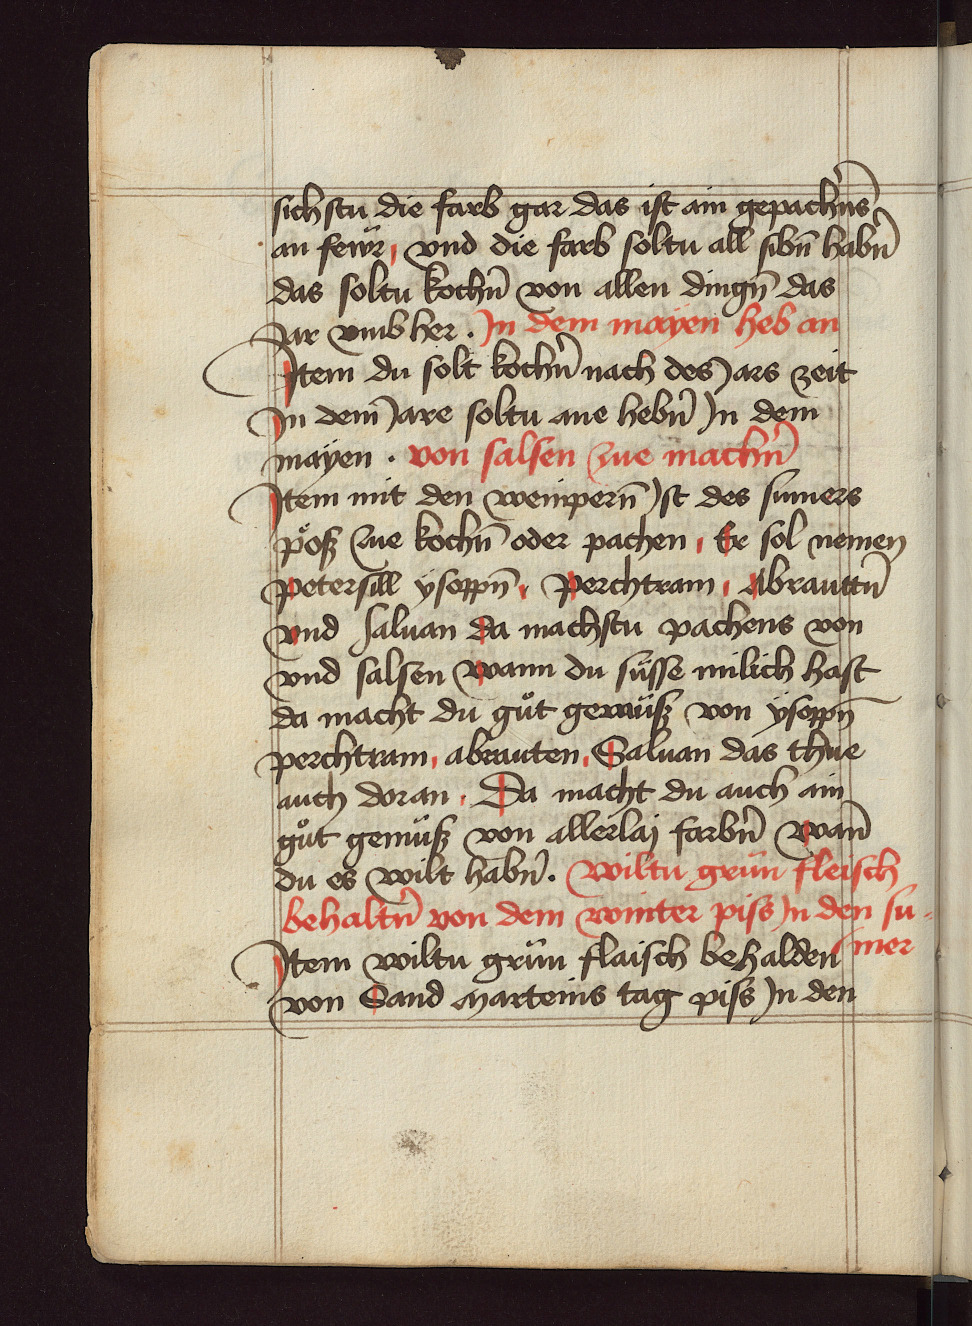 sichstu die farb gar das ist ain gepachn̄s
an fewr, vnd die farb soltu all sibn̄ habn̄
das soltu kochn̄ von allen dingn̄ das
Jar vmb her . Jn dem mayen heb an
Jtem du solt kochn̄ nach des Jars zeit
Jn dem Jare soltu ane hebn̄ Jn dem
mayen . von salsen zue machn̄
Jtem mit den weinpern̄ Jst des sumers
pöß zue kochn̄ oder pachen, Er sol nemen
petersill ysoppn̄, perchtram, abrauttn̄
vnd saluan da machstu pachens von
vnd salsen wann du süsse milich hast
da macht du gůt gemüß von ysoppn̄
perchtram, abrauten, Saluan das thue
auch doran. Da macht du auch ain
gůt gemüß von allerlaj farbn̄ wan̄
du es wilt habn̄. Wiltu grün fleisch
behaltn̄ von dem winter piss Jn den su-
mer
Jtem wiltu grün flaisch behalden
von Sand marteins tag piss Jn den